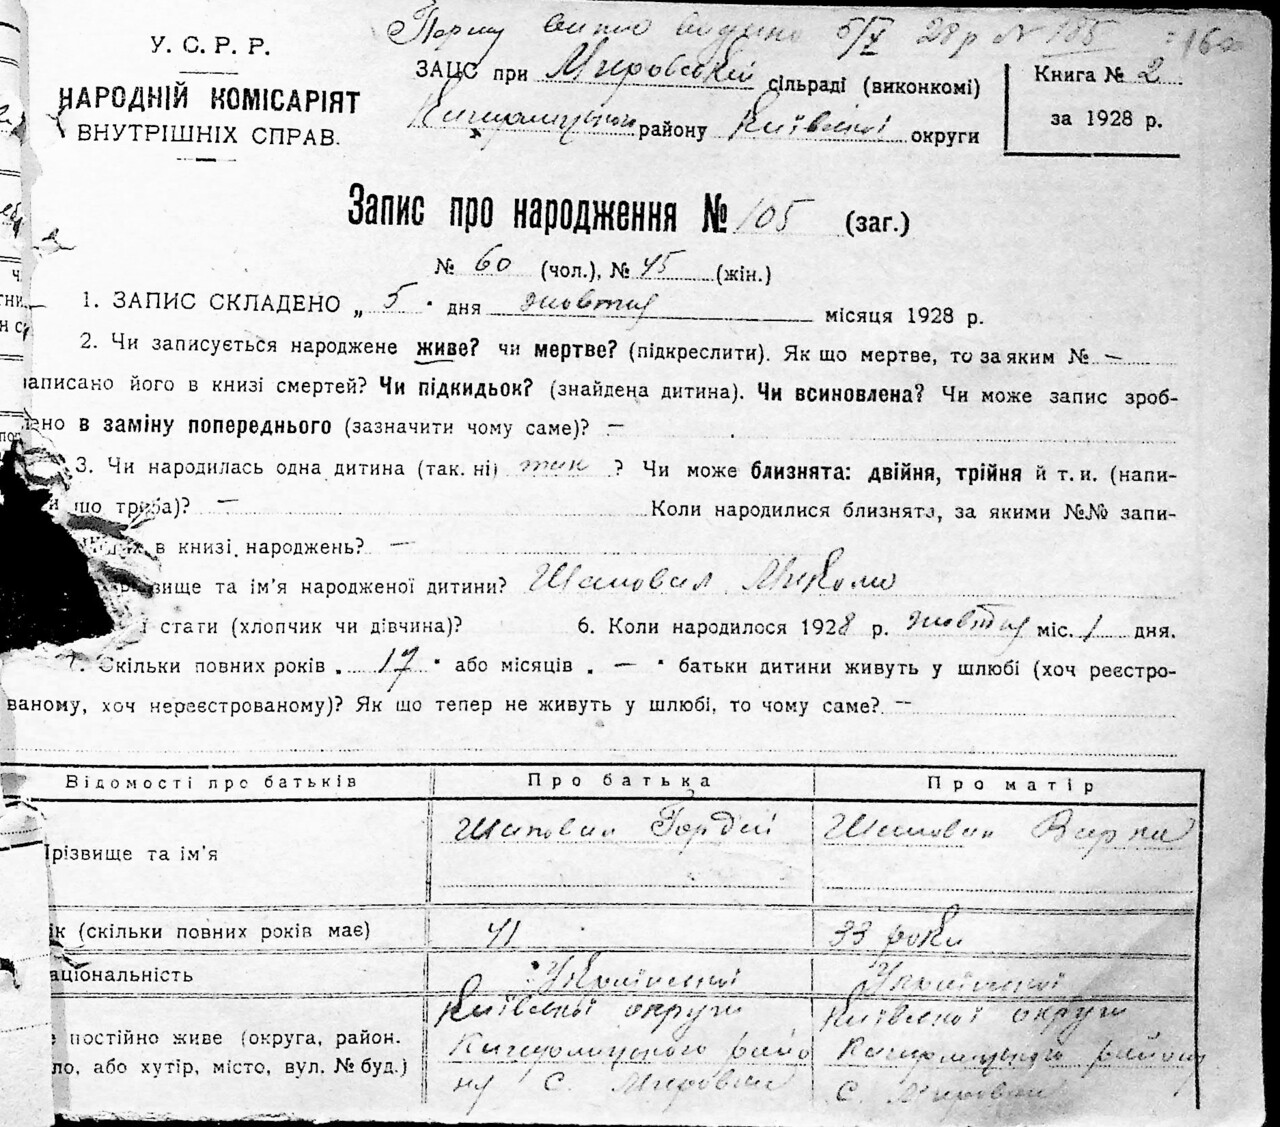 Першу витяг видано 5/X 28 р № 105
У. С. Р. Р.
НАРОДНІЙ КОМІСАРІЯТ
ВНУТРІШНІХ СПРАВ.
ЗАЦС при Мировській сільраді (виконкомі)
району Київської округи
Книга № 2
за 1928 р.
Запис про народження № 105 (заг.)
№ 60 (чол.), № 45 (жін.)
1. ЗАПИС СКЛАДЕНО „ 5 " дня жовтня місяця 1928 р.
2. Чи записується народжене живе? чи мертве? (підкреслити). Як що мертве, то за яким № —
записано його в книзі смертей? Чи підкидьок? (знайдена дитина). Чи всиновлена? Чи може запис зроб-
лено в заміну попереднього (зазначити чому саме)? —
3. Чи народилась одна дитина (так. ні) так ? Чи може близнята: двійня, трійня й т. и. (напи-
що треба)? — Коли народилися близнята, за якими №№ запи-
в книзі народжень? —
вище та ім'я народженої дитини? Шаповал Микола
стати (хлопчик чи дівчина)? 6. Коли народилося 1928 р. жовтня міс. 1 дня.
7. Скільки повних років „ 17 " або місяців „ — " батьки дитини живуть у шлюбі (хоч реєстро-
ваному, хоч нереєстрованому)? Як що тепер не живуть у шлюбі, то чому саме? —
Відомості про батьків Про батька Про матір
Прізвище та ім'я Шаповал Гордій Шаповал Варка
ік (скільки повних років має) 41 33 роки
аціональність Української Української
постійно живе (округа, район. Київської округи Київської округи
ло, або хутір, місто, вул. № буд.) райо району
ну с. Мировка с. Мировка